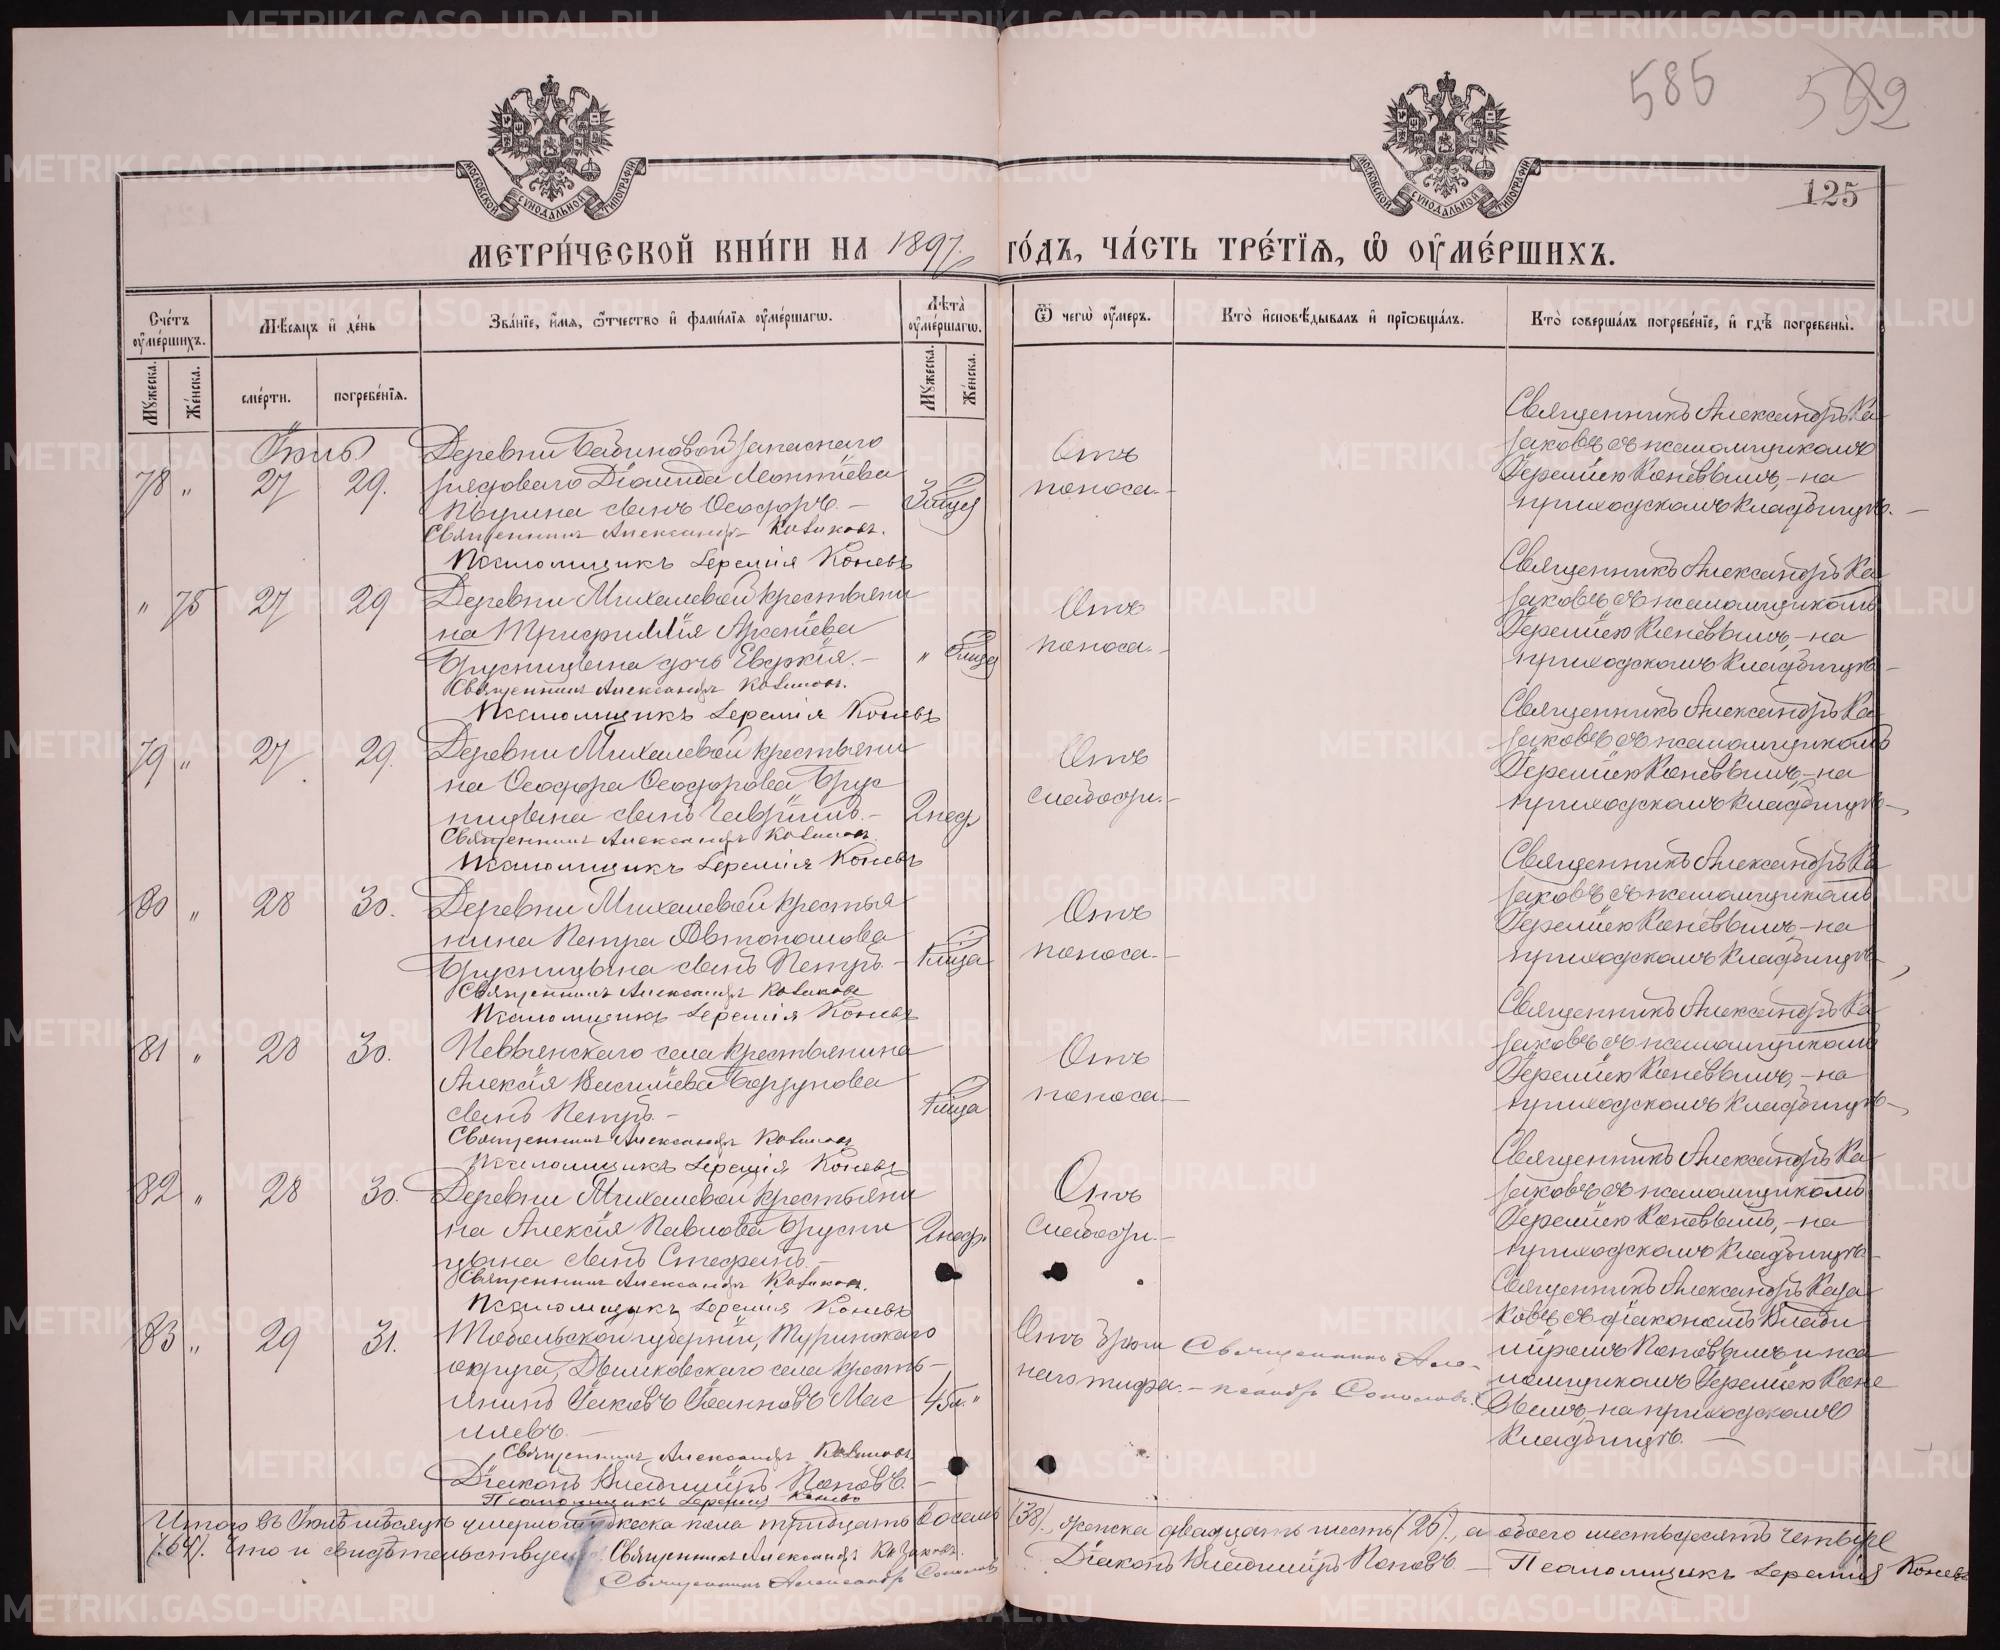 585 592
125
МОСКОВСКОЙ СѴНОДАЛЬНОЙ ТИПОГРАФІИ
МОСКОВСКОЙ СѴНОДАЛЬНОЙ ТИПОГРАФІИ
МЕТРИ́ЧЕСКОЙ КНИ́ГИ НА 1897. ГО́ДЪ, ЧА́СТЬ ТРЕ́ТІѦ, Ѡ ОУМЕ́РШИХЪ.
Сче́тъ оуме́ршихъ.
Мѣ́сяцъ и де́нь
Зва́ніе, и́мя, ѻ́тчество и фами́лія оуме́ршагѡ.
Лѣта̀ оуме́ршагѡ.
Ѿ чегѡ̀ оу́меръ.
Кто̀ исповѣ́дывалъ и пріѡбща́лъ.
Кто̀ соверша́лъ погребе́ніе, и гдѣ̀ погребены̀.
Му́жеска.
Же́нска.
сме́рти.
погребе́нія.
Му́жеска.
Же́нска.
Іюль
78 " 27 29.
Деревни Бабиновой запаснаго
рядоваго Діомида Леонтіева
сынъ Ѳеодоръ. –
Священникъ Александръ Казаковъ.
Псаломщикъ Іеремія Коневъ
3 мѣсяц
Отъ
поноса. –
Священникъ Александръ Ка-
заковъ съ псаломщикомъ
Іереміею Коневымъ, – на
приходскомъ кладбищѣ. –
" 75 27 29
Деревни Михалевой крестьяни
на Трифиллія Арсеніева
Брусницына дочь Евдокія. –
Священникъ Александръ Казаковъ.
Псаломщикъ Іеремія Коневъ
"
Отъ
поноса. –
Священникъ Александръ Ка-
заковъ съ псаломщикомъ
Іереміею Коневымъ, – на
приходскомъ кладбищѣ –
79 " 27 29.
Деревни Михалевой крестьяни
на Ѳеодора Ѳеодорова Брус
ницына сынъ Гавріилъ. –
Священникъ Александръ Казаковъ
Псаломщикъ Іеремія Коневъ
2 нед.
Отъ
слабости. –
Священникъ Александръ Ка-
заковъ съ псаломщикомъ
Іереміею Коневымъ, – на
приходскомъ кладбищѣ –
80 " 28 30.
Деревни Михалевой крестья
нина Петра Автономова
Брусницына сынъ Петръ. –
Священникъ Александръ Казаковъ
Псаломщикъ Іеремія Коневъ
Отъ
поноса. –
Священникъ Александръ Ка
заковъ съ псаломщикомъ
Іереміею Коневымъ, – на
приходскомъ кладбищѣ –
81 " 28 30.
Невьянскаго села крестьянина
Алексія Василіева Борзунова
сынъ Петръ. –
Священникъ Александръ Казаковъ
Псаломщикъ Іеремія Коневъ
Отъ
поноса. –
Священникъ Александръ Ка
заковъ съ псаломщикомъ
Іереміею Коневымъ, – на
приходскомъ кладбищѣ –
82 " 28 30.
Деревни Михалевой крестьяни
на Алексія Павлова Брусни
цына сынъ Стефанъ. –
Священникъ Александръ Казаковъ.
Псаломщикъ Іеремія Коневъ
2 нед.
Отъ
слабости. –
Священникъ Александръ Ка-
заковъ съ псаломщикомъ
Іереміею Коневымъ, – на
приходскомъ кладбищѣ –
83 " 29 31.
Тобольской губерніи, Туринскаго
округа, села кресть-
янинъ Іаковъ Іоанновъ Мас
ляевъ. –
Священникъ Александръ Казаковъ
Діаконъ Владиміръ Поповъ. –
Псаломщикъ Іеремія Коневъ
45 л. "
Отъ брюш
наго тифа. –
Священникъ Але-
ксандръ Соколовъ.
Священникъ Александръ Каза-
ковъ съ діакономъ Влади
міромъ Поповымъ и пса
ломщикомъ Іереміею Коне
вымъ, – на приходскомъ
кладбищѣ. –
Итого въ Іюлѣ мѣсяцѣ умерло мужеска пола тридцать восемь (38), женска двадцать шесть (26), а обоего шестьдесятъ четыре
(64). Что и свидѣтельствуемъ: Священникъ Александръ Казаковъ. Діаконъ Владиміръ Поповъ. – Псаломщикъ Іеремія Коневъ
Священникъ Александръ Соколовъ
METRIKI.GASO-URAL.RU